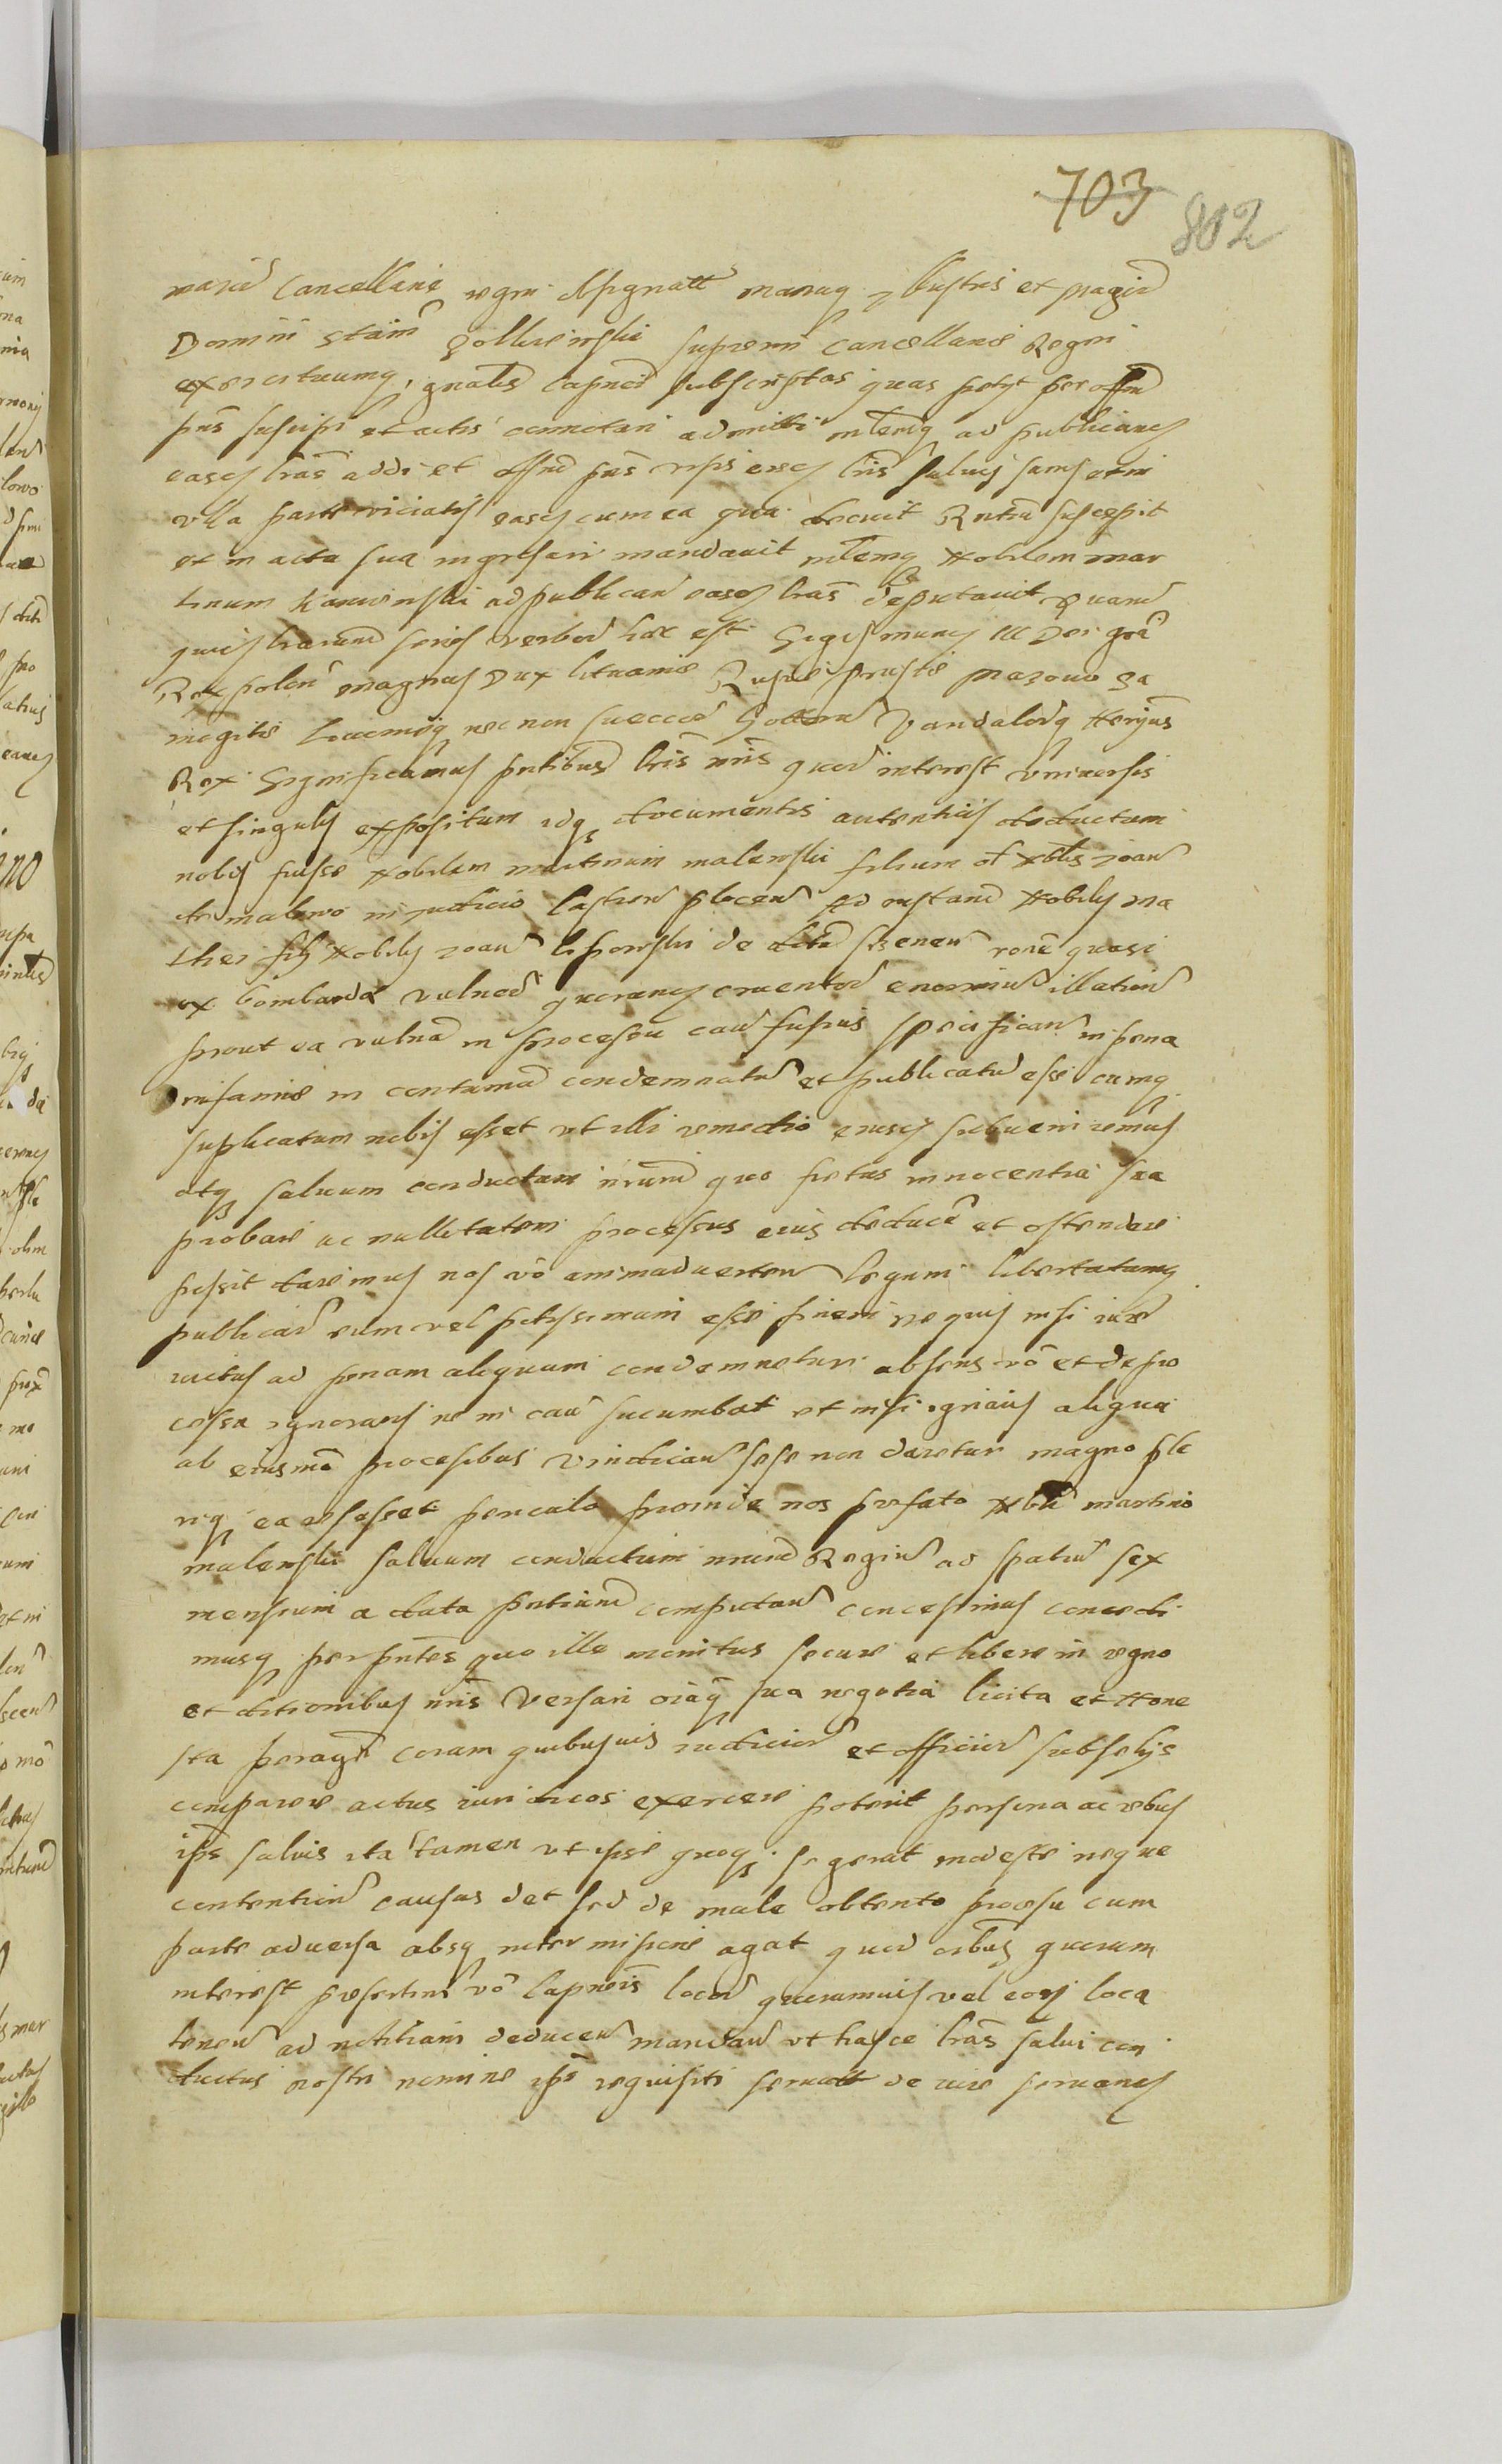 703 802
Cancellariae regni Assignatt manuq Illustris et magcd
Domini Stan Zolkiewski supremi Cancellarie Regni
exercituumq, gnalis Capnei subscriptas quas petyt per offm
pns suscipi et actis connotari admitti mlemq ad publicand
easd lras addi et offm pns visis eisd lris saluis sanis et in
vlla parte viciatis easd cum ea qua decuit Rntia suscepit
et in acta sua ingrossari mandauit mlemq Nobilem mar
tinum ad publicand easd lras deputauit quaru
quid lrarum series verbor hoc est Sigismundus III Dei gra
Rex polon magnus Dux lituaniae Russie prussie mazouie Sa
mogitie Liuoniaeq necnon Sueccor Gottor Vandalorq Herius
Rex Significamus pntibus lris nris quor interest vniuersis
et singulis expositum idq documentis autenticis deductum
nobis fuisse Nobilem martinum malewski filium ol Nblis Joan
de malewo in judicio Castren plocen ad instand Nobilis ma
thei filij Nobilis Joan lipowski de rone quasi
ex bombarda vulner cruentor enormiu illation
prout ea vulna in processu cau fusius specifican in pena
infamie in contumad condemnatu et publicatu esse cumq
suplicatum nobis esset vt illi remedio subueniremus
atq saluum conductum nrum quo fretus innocentia sua
probare ac nullitatem processus eius deduce et ostendere
possit daremus nos vo animaduerten legum libertatumq
publicar eum vel potissimum esse finem ne quis nisi iure
victus ad penam aliquam condemnetur absens vo et de pro
cessu ignorans ne in cau sucumbat et nisi aliqua
ab eiusmo processibus vindicandi sese non daretur magno ple
riq ea res esset periculo proinde nos prefato Nbli martino
malewski saluum conductum nrum Regiu ad spatiu sex
mensium a data pntium computan concessimus concedi
musq per pntes quo ille munitus secure et libere in regno
et ditionibus nris versari oiaq sua negotia licita et Hone
sta perage coram quibusuis iudicior et officior subselijs
comparere actus iuridicos exercere poterit persona ac rebus
ips saluis ita tamen vt ipse quoq se gerat modeste neque
contentionu causas det sed de male obtento processu cum
parte aduersa absq intermissione agat quod oibus quorum
interest presertim vo Capneis locor quorumuis vel eor loca
tenen ad notitiam deducen mandan vt hasce lras salui con
ductus nostri nomine ips requisiti seruatt de iure seruand